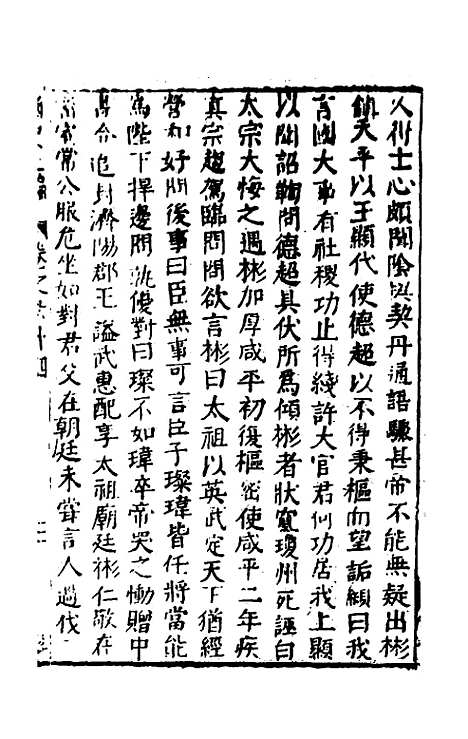 久得士心頗聞陰與契丹通語驟甚帝不能無疑出彬
鎮天平以王顯代使德超以不得秉樞而望詬顯曰我
言國大事有社稷功止得綫許大官君何功居我上顯
以聞詔鞫問德超具伏所爲傾彬者狀竄瓊州死誣白
太宗大悔之遇彬加厚咸平初復樞密使咸平二年疾
真宗趣駕臨問問欲言彬曰太祖以英武定天下猶經
營和好問後事曰臣無事可言臣子璨瑋皆任將當能
爲陛下捍邊問孰優對曰璨不如瑋卒帝哭之慟贈中
書令追封濟陽郡王謚武惠配享太祖廟廷彬仁敬在
常公服危坐如對君父在朝廷未嘗言人過伐
卷之 十四